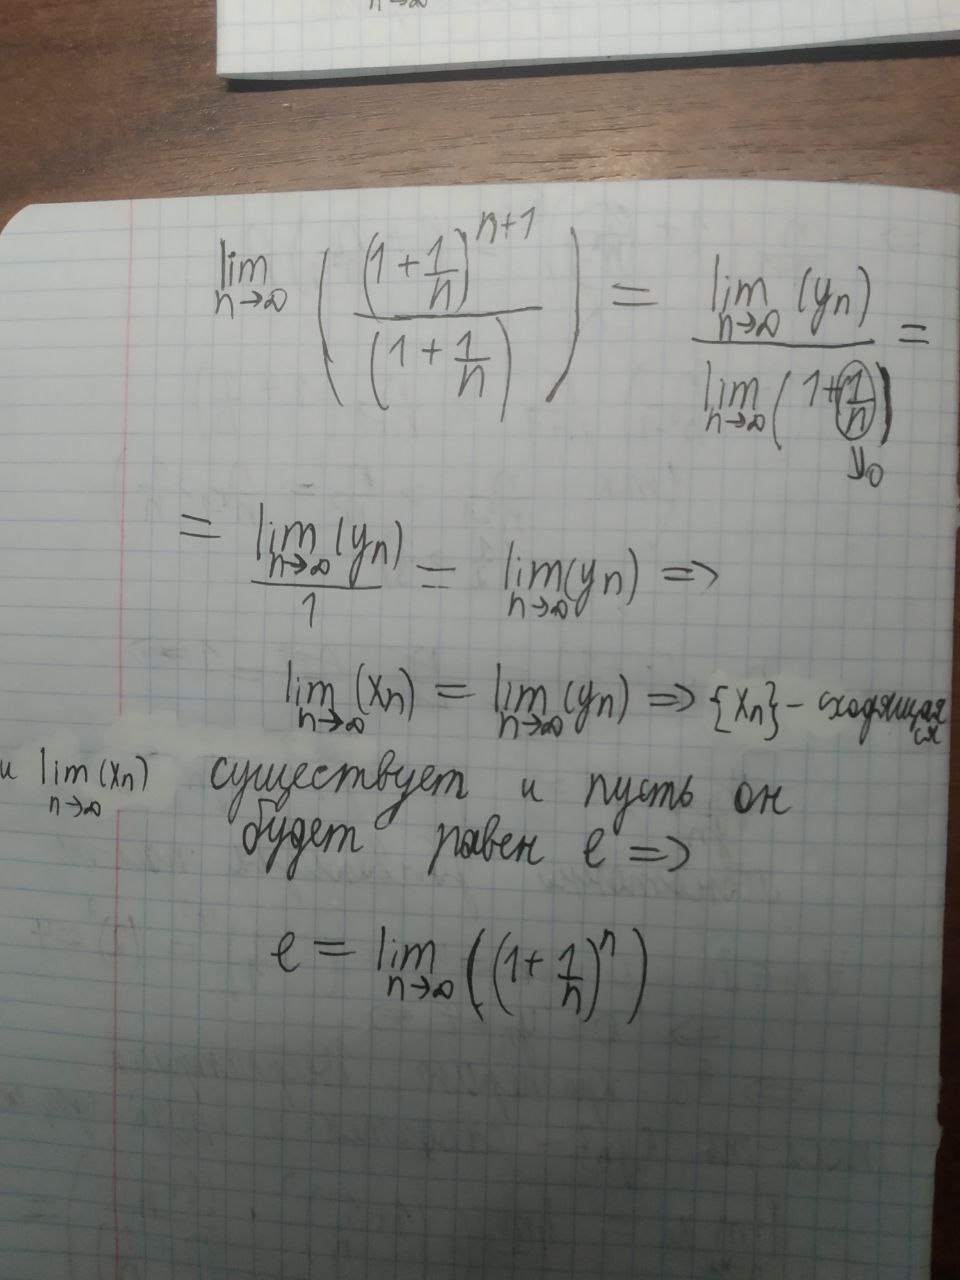 n→∞
lim n→∞ ( (1 + 1/n)^(n+1) / (1 + 1/n) ) = lim n→∞ (yn) / lim n→∞ (1 + 1/n) =
↓0
= lim n→∞ (yn) / 1 = lim n→∞ (yn) =>
lim n→∞ (xn) = lim n→∞ (yn) => {xn} - сходящая
ся
и lim n→∞ (xn) существует и пусть он
будет равен e =>
e = lim n→∞ ((1 + 1/n)^n)